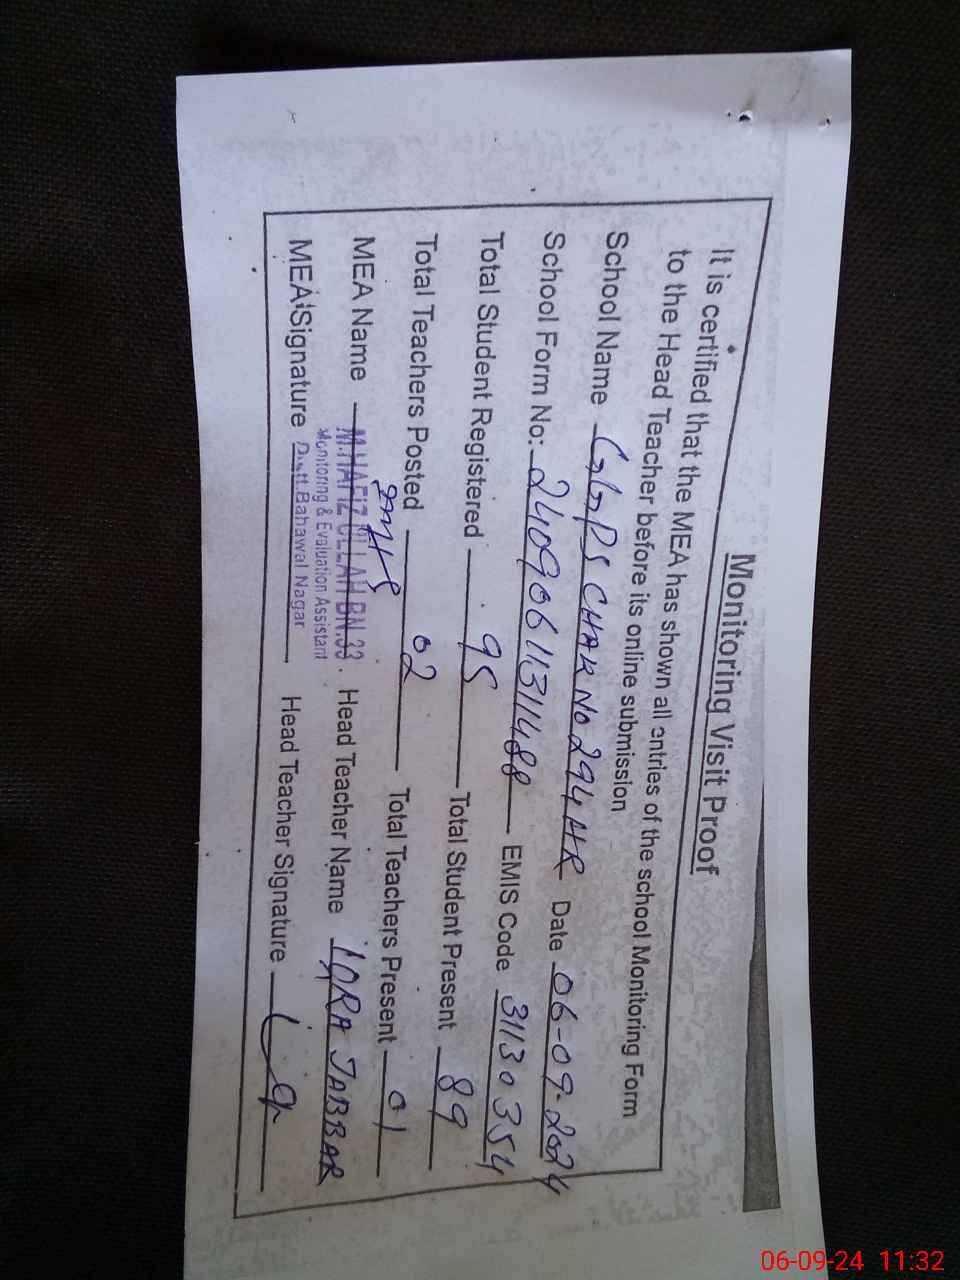 Monitoring Visit Proof
It is certified that the MEA has shown all entries of the school Monitoring Form
to the Head Teacher before its online submission
School Name GGPS CHAK NO 294 HR Date 06-09-2024
School Form No: 24090611311488 EMIS Code 31130354
Total Student Registered 95 Total Student Present 89
Total Teachers Posted 02 Total Teachers Present 01
MEA Name M.HAFIZ ULLAH BN.33 Head Teacher Name IQRA JABBAR
Monitoring & Evaluation Assistant
MEA Signature Distt.Bahawal Nagar Head Teacher Signature
06-09-24 11:32